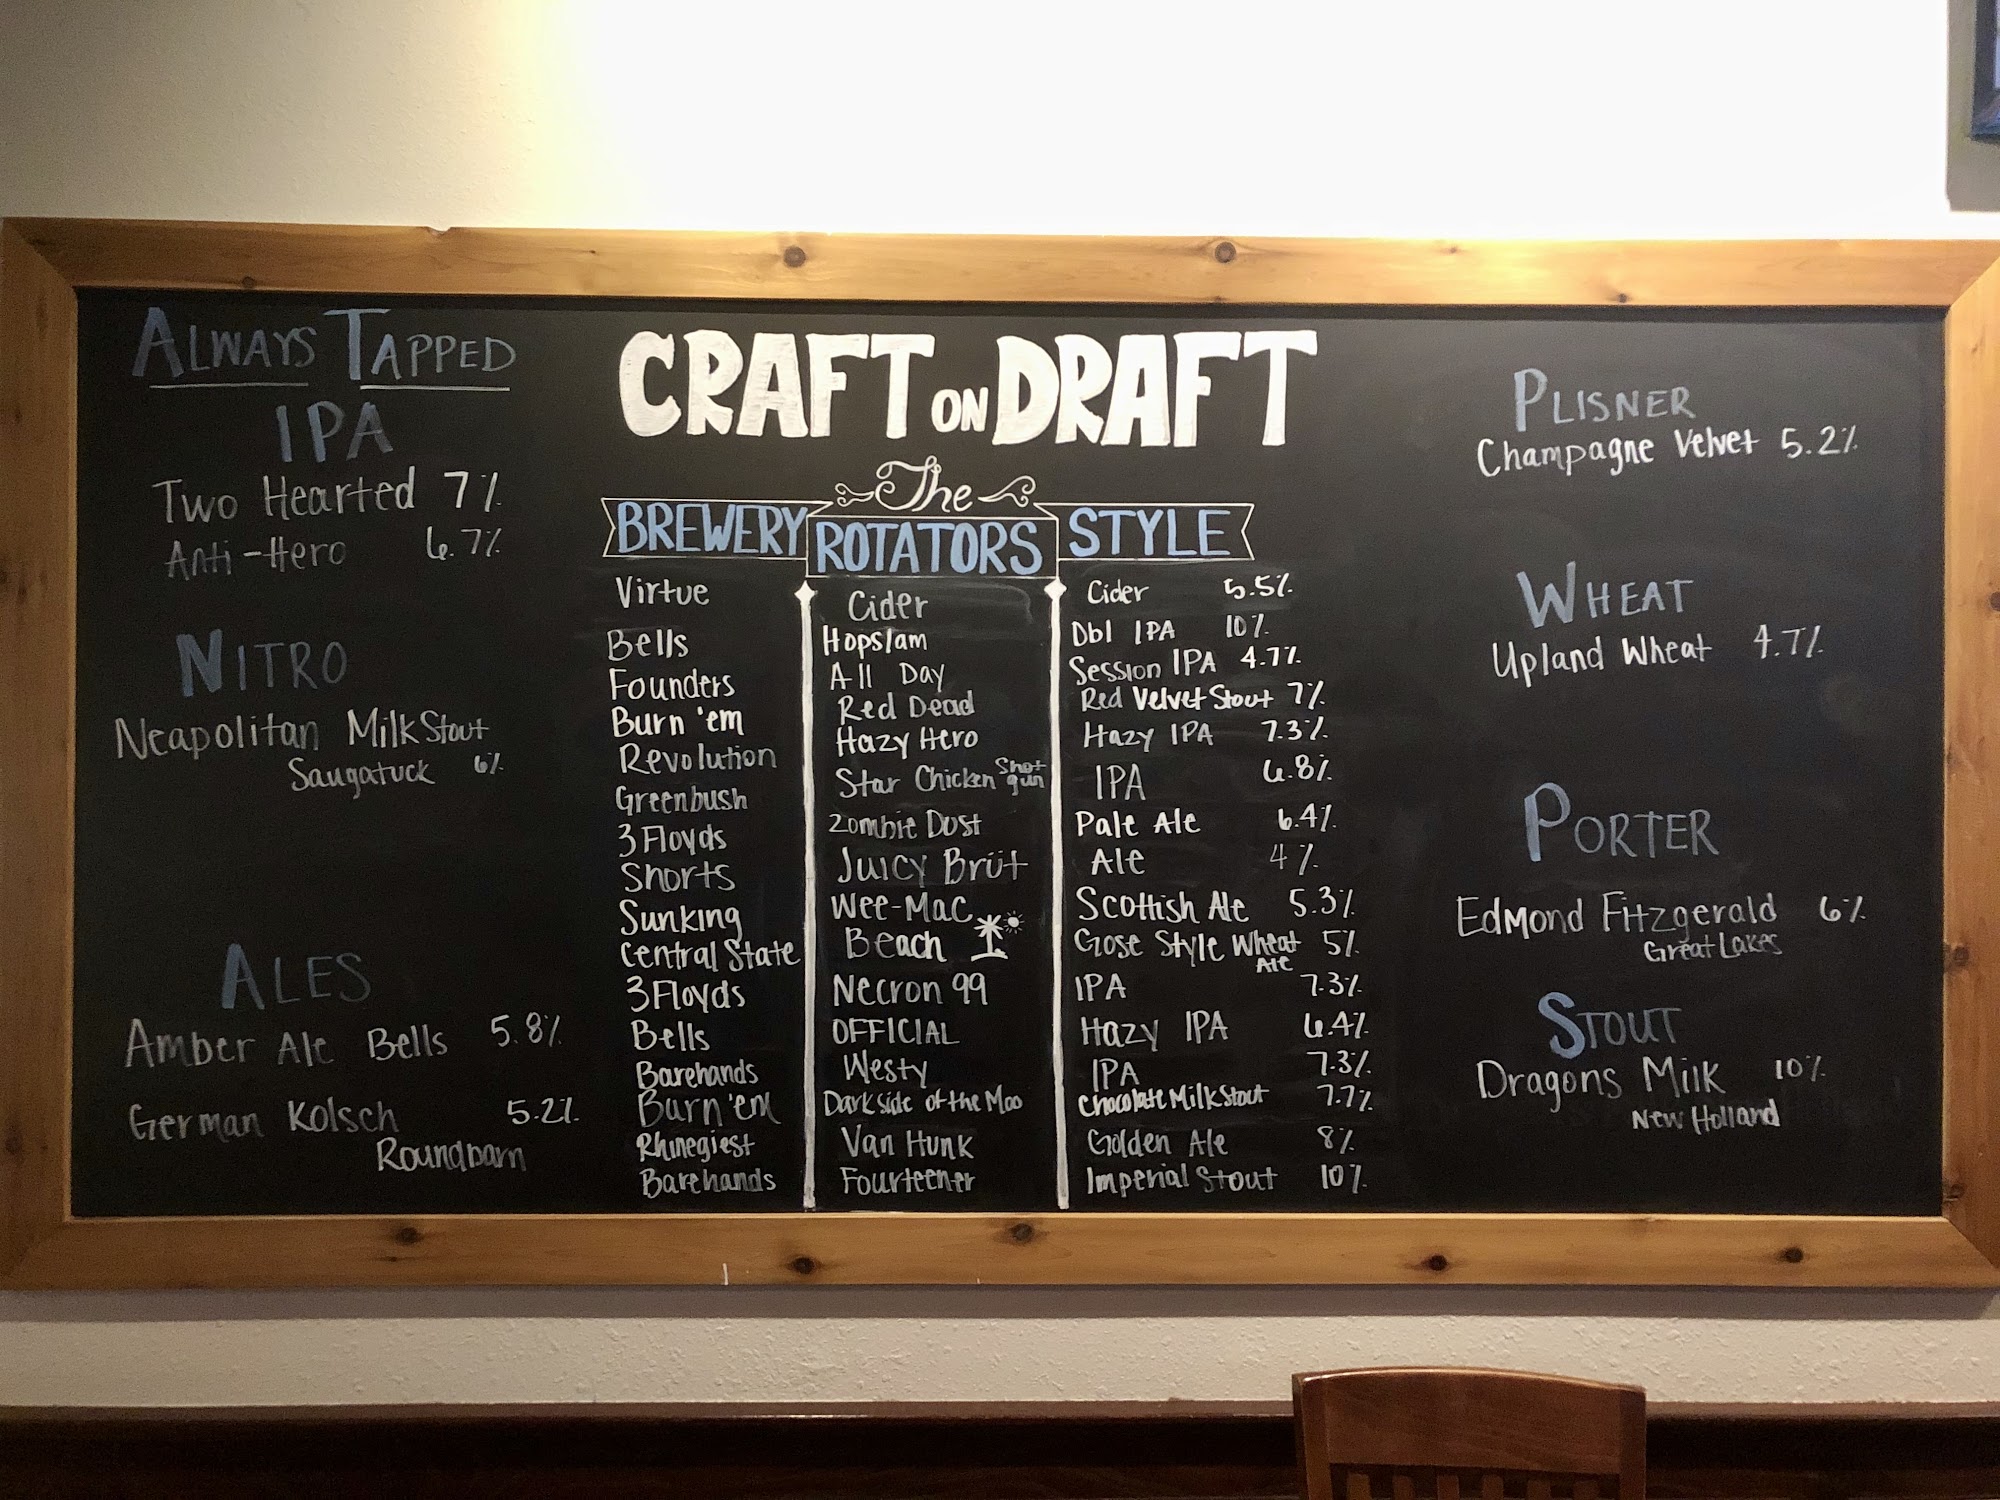 ALWAYS TAPPED
IPA
Two Hearted 7%
Anti-Hero 6.7%
NITRO
Neapolitan Milk Stout
Saugatuck 6%
ALES
Amber Ale Bells 5.8%
German Kolsch 5.2%
Roundbarn
CRAFT ON DRAFT
The
BREWERY ROTATORS STYLE
Virtue Cider Cider 5.5%
Bells Hopslam Dbl IPA 10%
Founders All Day Session IPA 4.7%
Burn 'em Red Dead Red Velvet Stout 7%
Revolution Hazy Hero Hazy IPA 7.3%
Greenbush Star Chicken Shotgun IPA 6.8%
3 Floyds Zombie Dust Pale Ale 6.4%
Shorts Juicy Brüt Ale 4%
Sunking Wee-Mac Scottish Ale 5.3%
Central State Beach Gose Style Wheat Ale 5%
3 Floyds Necron 99 IPA 7.3%
Bells OFFICIAL Hazy IPA 6.4%
Barehands Westy IPA 7.3%
Burn 'em Dark side of the Moo Chocolate Milk Stout 7.7%
Rhinegiest Van Hunk Golden Ale 8%
Barehands Fourteener Imperial Stout 10%
PLISNER
Champagne Velvet 5.2%
WHEAT
Upland Wheat 4.7%
PORTER
Edmond Fitzgerald 6%
Great Lakes
STOUT
Dragons Milk 10%
New Holland